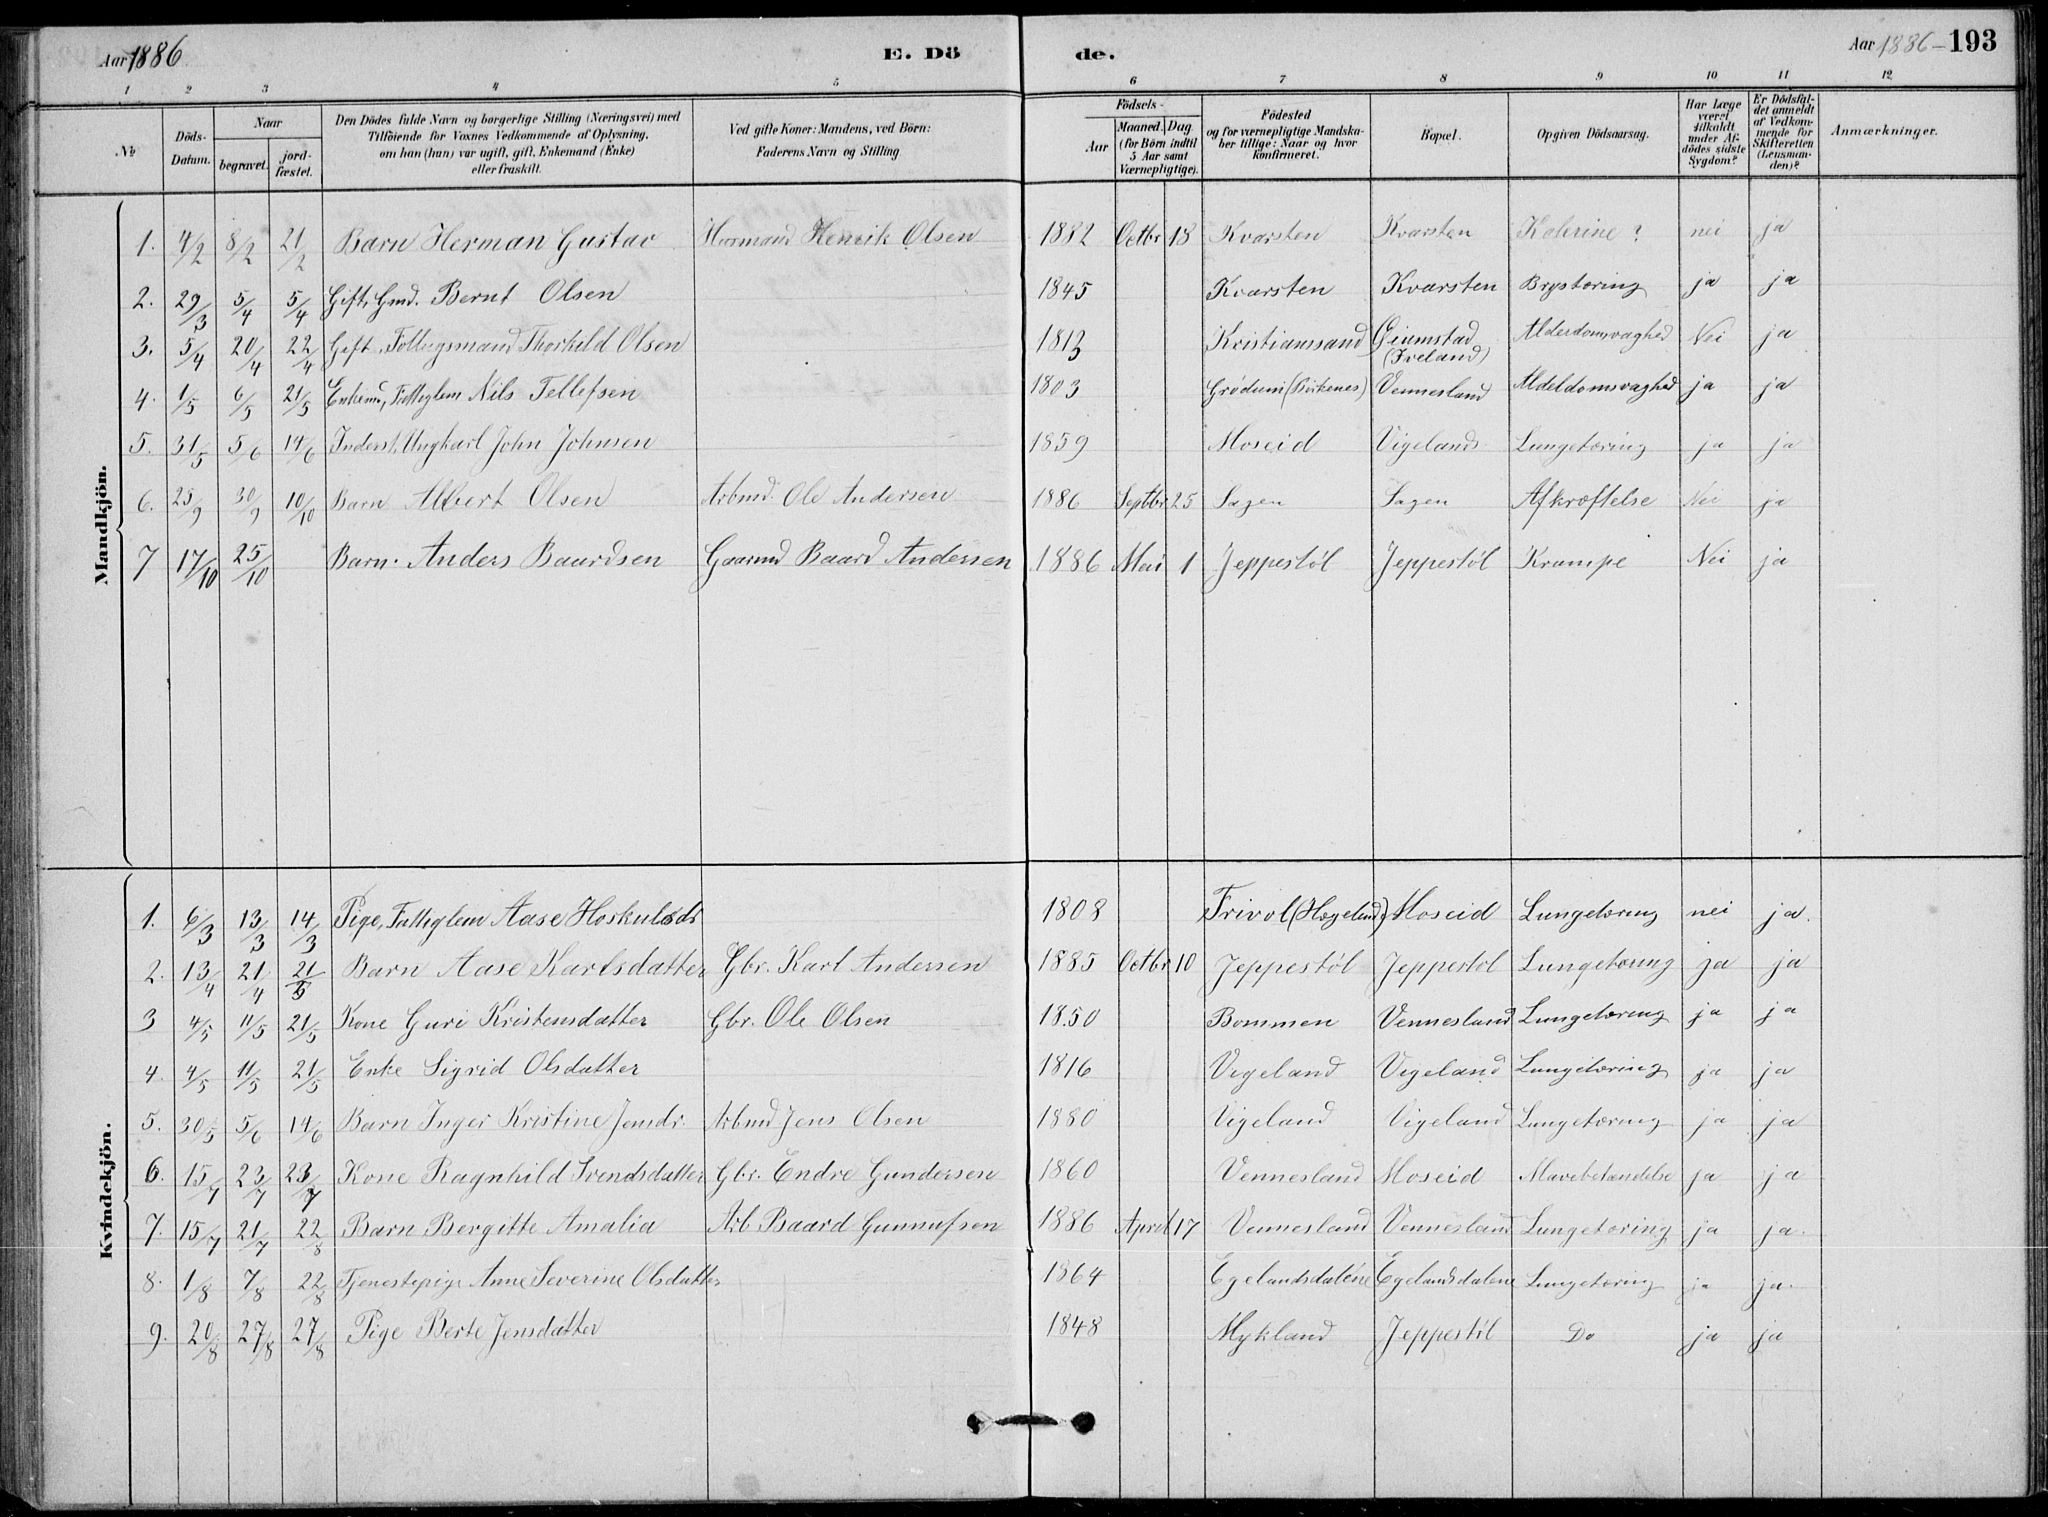 Aar 1886 E. Dö de. Aar 1886 — 193
1 2 3 4 5 6 7 8 9 10 11 12
№
Döds-Datum.
Naar
begravet.
jordfæstet.
Den Dödes fulde Navn og borgerlige Stilling (Næringsvei) med
Tilföiende for Voxnes Vedkommende af Oplysning,
om han (hun) var ugift, gift, Enkemand (Enke)
eller fraskilt.
Ved gifte Koner: Mandens, ved Börn:
Faderens Navn og Stilling
Födsels-
Aar
Maaned. Dag
(for Börn indtil
5 Aar samt
Værnepligtige).
Födested
og for værnepligtige Mandska-
ber tillige: Naar og hvor
konfirmeret.
Bopæl.
Opgiven Dödsaarsag.
Har Læge
været
tilkaldt
under Af-
dödes sidste
Sygdom?
Er Dödsfal-
det anmeldt
af Vedkom-
mende for
Skifteretten
(Lensman-
den)?
Anmærkninger.
Mandkjön.
1. 4/2 8/2 21/2 Barn Herman Gustav Huusmand Henrik Olsen 1882 Octbr 18 Kvarsten Kvarsten Katerine? nei ja
2. 29/3 5/4 5/4 Gift, Gmd. Bernt Olsen 1845 Kvarsten Kvarsten Brystæring ja ja
3. 5/4 20/4 22/4 Gift, Fattigsmand Thorkild Olsen 1813 Kristianssand Grimstad (Iveland) Alderdomsvaghed Nei ja
4. 1/5 6/5 21/5 Enkemd, Fattiglem Nils Tellefsen 1803 Grødum (Birkenes) Vennesland Aldeldomsvaghed ja ja
5. 31/5 5/6 14/6 Inderst, Ungkarl John Johnsen 1859 Moseid Vigeland Lungetæring ja ja
6. 25/9 30/9 10/10 Barn Albert Olsen Arbmd. Ole Andersen 1886 Septbr 25 Sagen Sagen Afkræftelse Nei ja
7 17/10 25/10 Barn. Anders Baardsen Gaarmd Baard Andersen 1886 Mai 1 Jeppestøl Jeppestøl Krampe Nei ja
Kvindekjön.
1. 6/3 13/3 14/3 Pige, Fattiglem Aase Hoskuldsdr 1808 Frivol (Hægeland) Moseid Lungetæring nei ja.
2. 13/4 21/4 21/5 Barn Aase Karlsdatter Gbr. Karl Andersen 1885 Octbr 10 Jeppestøl Jeppestøl Lungetæring ja ja
3 4/5 11/5 21/5 Kone Guri Kristensdatter Gbr. Ole Olsen 1850 Bommen Vennesland Lungetæring ja ja
4. 4/5 11/5 21/5 Enke Sigrid Olsdatter 1816 Vigeland Vigeland Lungetæring ja ja
5. 30/5 5/6 14/6 Barn Inger Kristine Jensdr. Arbmd Jens Olsen 1880 Vigeland Vigeland Lungetæring ja ja
6. 15/7 23/7 23/7 Kone Ragnhild Svendsdatter Gbr. Endre Gundersen 1860 Vennesland Moseid Mavebetændelse ja ja
7. 15/7 21/7 22/8 Barn Bergitte Amalia Arb. Baard Gunnufsen 1886 April 17 Vennesland Vennesland Lungetæring ja ja.
8. 1/8 7/8 22/8 Tjenestepige Anne Severine Olsdatter 1864 Egelandsdalene Egelandsdalene Lungetæring ja ja.
9. 20/8 27/8 27/8 Pige Berte Jensdatter 1848 Mykland Jeppestøl Do ja ja